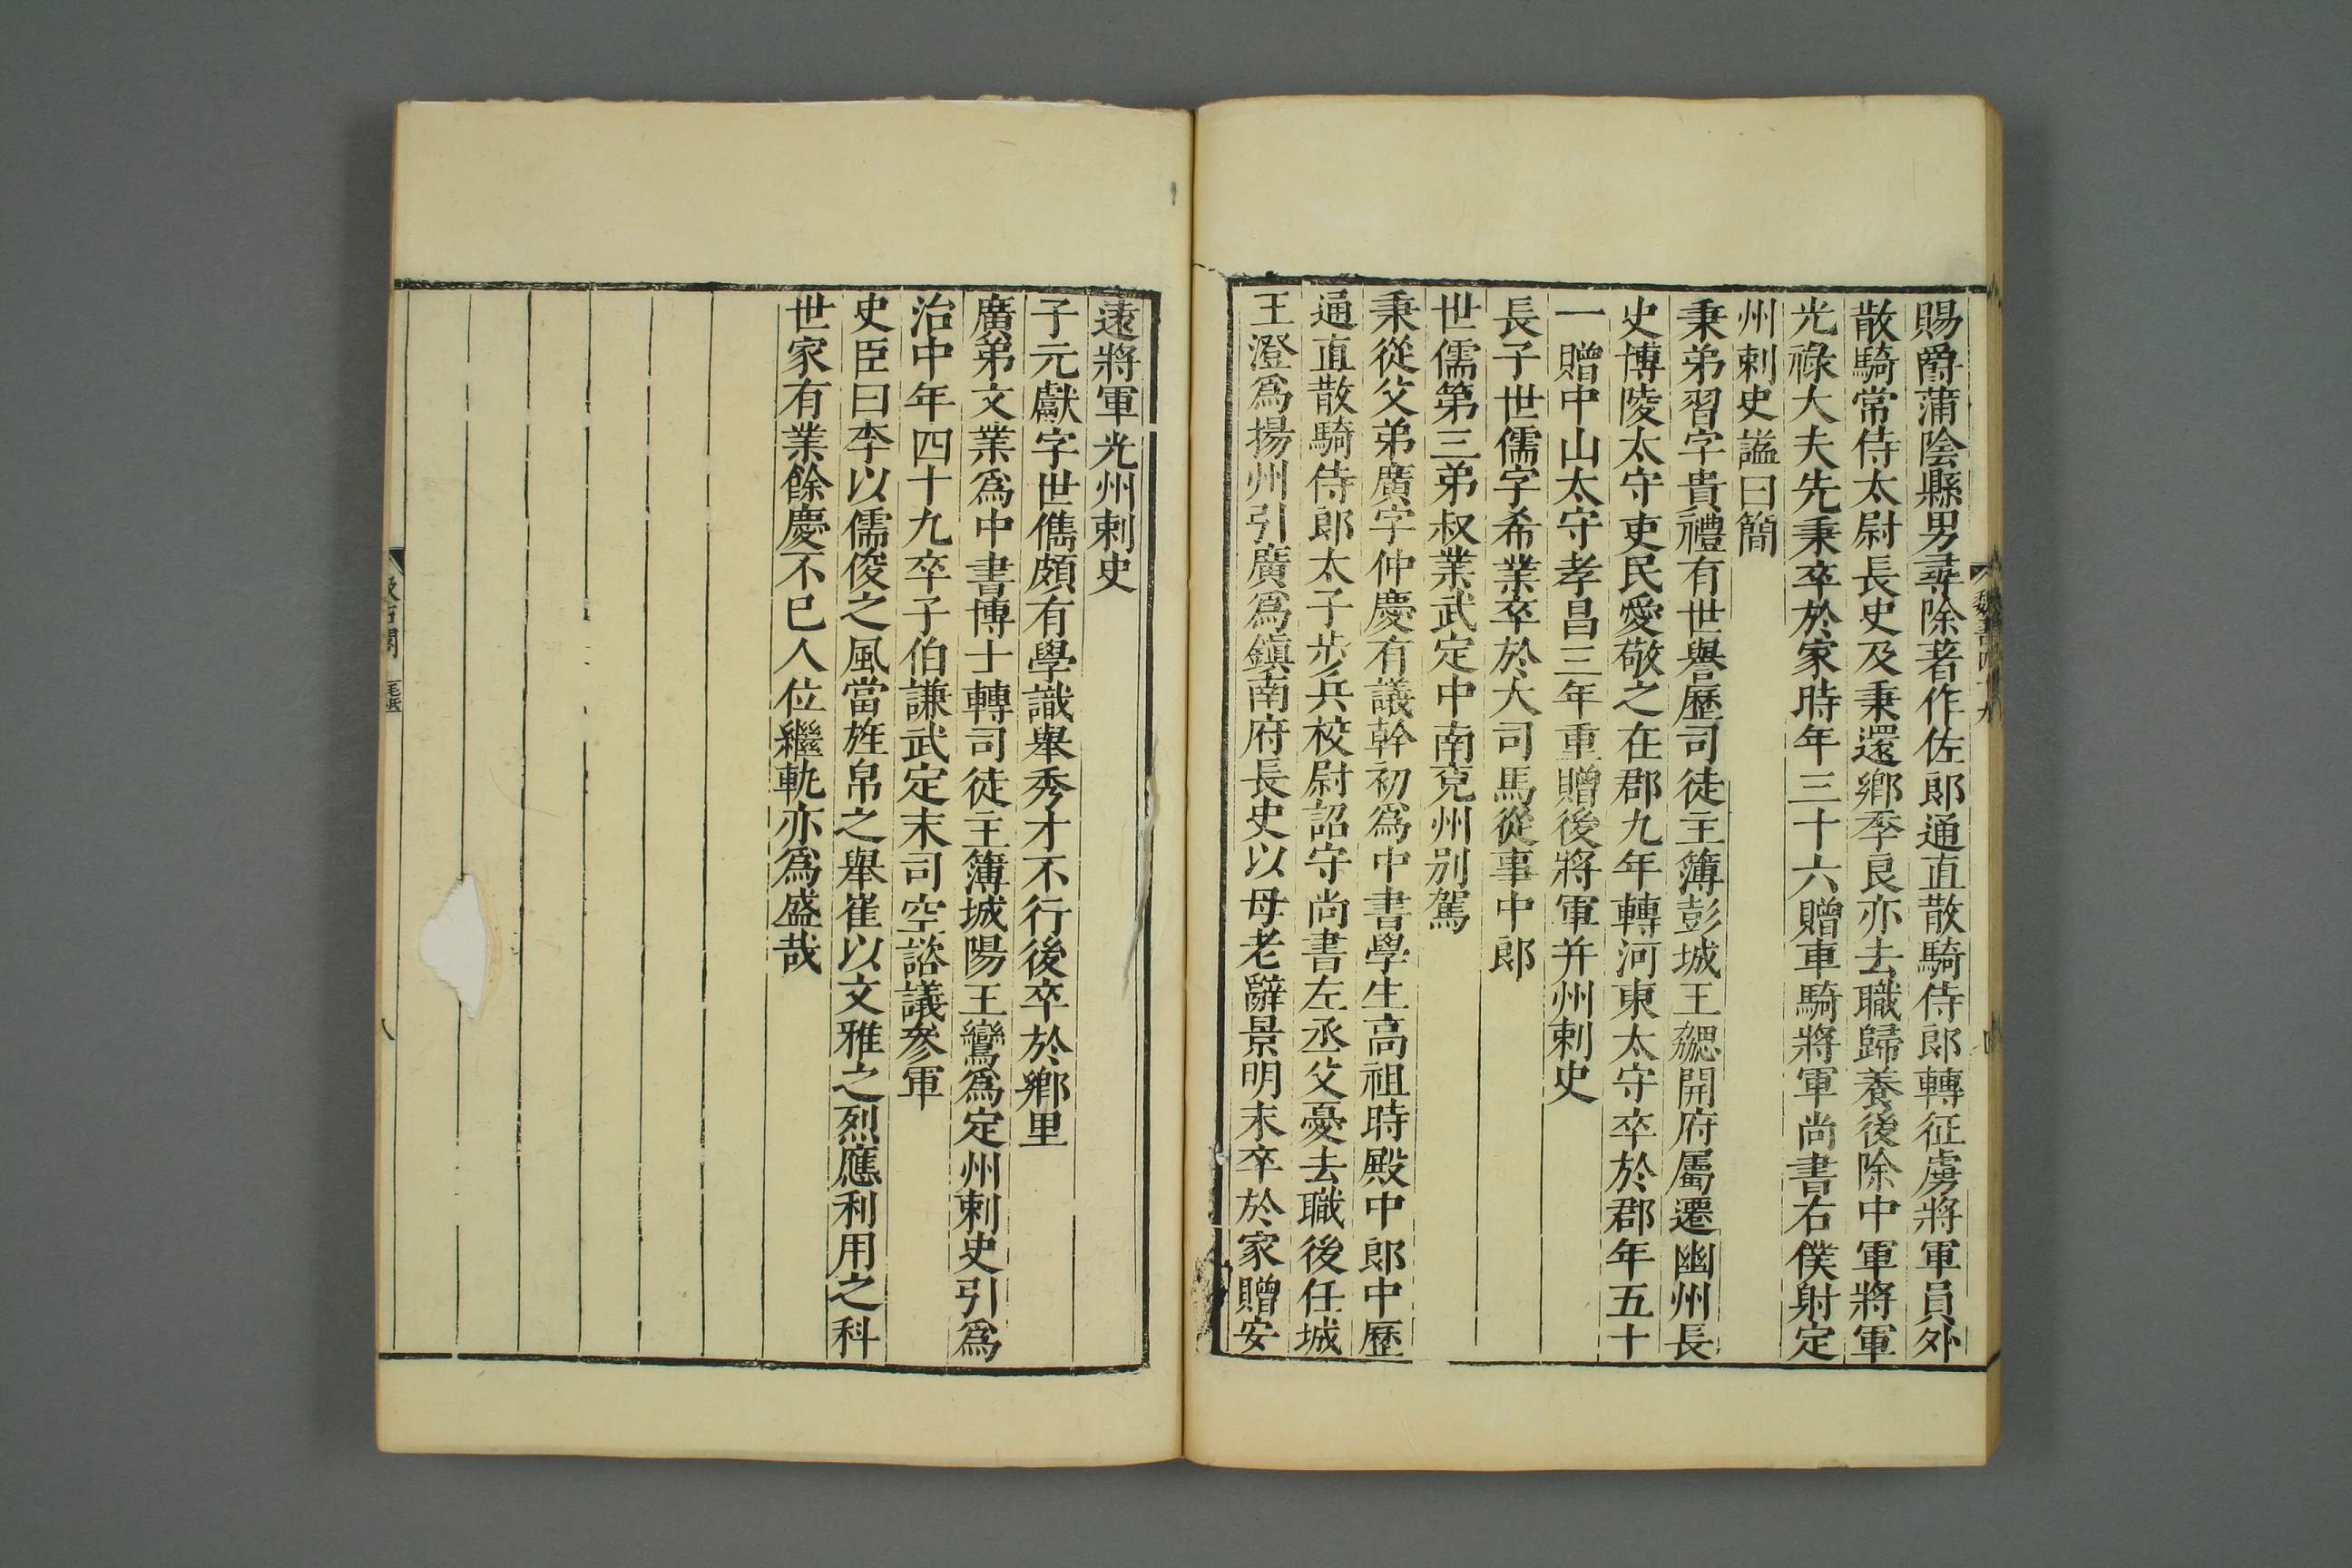 賜爵蒲陰縣男尋除著作佐郎通直散騎侍郎轉征虜將軍員外
散騎常侍太尉長史及秉還鄉季良亦去職歸養後除中軍將軍
光祿大夫先秉卒於家時年三十六贈車騎將軍尚書右僕射定
州刺史謚曰簡
秉弟習字貴禮有世譽歷司徒主簿彭城王勰開府屬遷幽州長
史博陵太守吏民愛敬之在郡九年轉河東太守卒於郡年五十
一贈中山太守孝昌三年重贈後將軍并州刺史
長子世儒字希業卒於大司馬從事中郎
世儒第三弟叔業武定中南兗州別駕
秉從父弟廣字仲慶有議幹初爲中書學生高祖時殿中郎中歷
通直散騎侍郎太子步兵校尉詔守尚書左丞父憂去職後任城
王澄爲揚州引廣爲鎮南府長史以母老辭景明末卒於家贈安
遠將軍光州刺史
子元獻字世儁頗有學識舉秀才不行後卒於鄉里
廣弟文業爲中書博士轉司徒主簿城陽王鸞爲定州刺史引爲
治中年四十九卒子伯謙武定末司空諮議參軍
史臣曰李以儒俊之風當旌帛之舉崔以文雅之烈應利用之科
世家有業餘慶不已人位繼軌亦爲盛哉
八